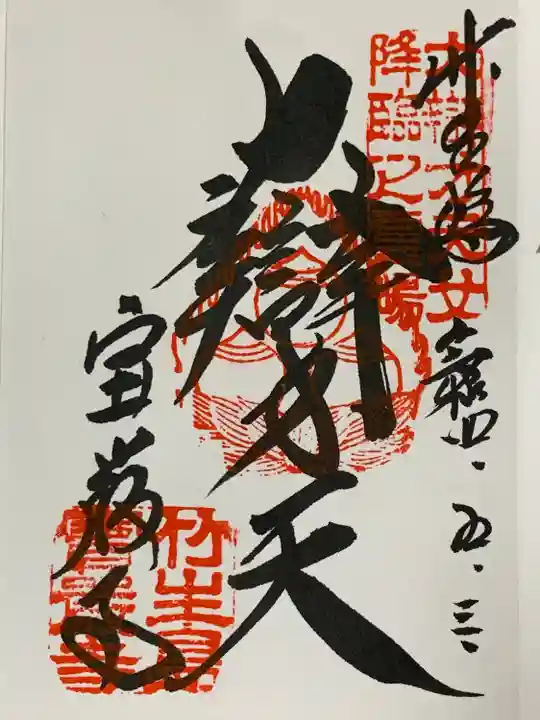 竹生島
令和四.五.三
大辯才天女
降臨之霊場
辯才天
宝厳寺
竹生島
寶嚴寺